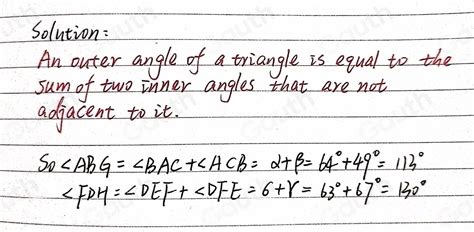 Solution:
An outer angle of a triangle is equal to the
sum of two inner angles that are not
adjacent to it.
So ∠ABG = ∠BAC + ∠ACB = α+β = 64°+49° = 113°
∠FDH = ∠DEF + ∠DFE = 6+γ = 63°+67° = 130°